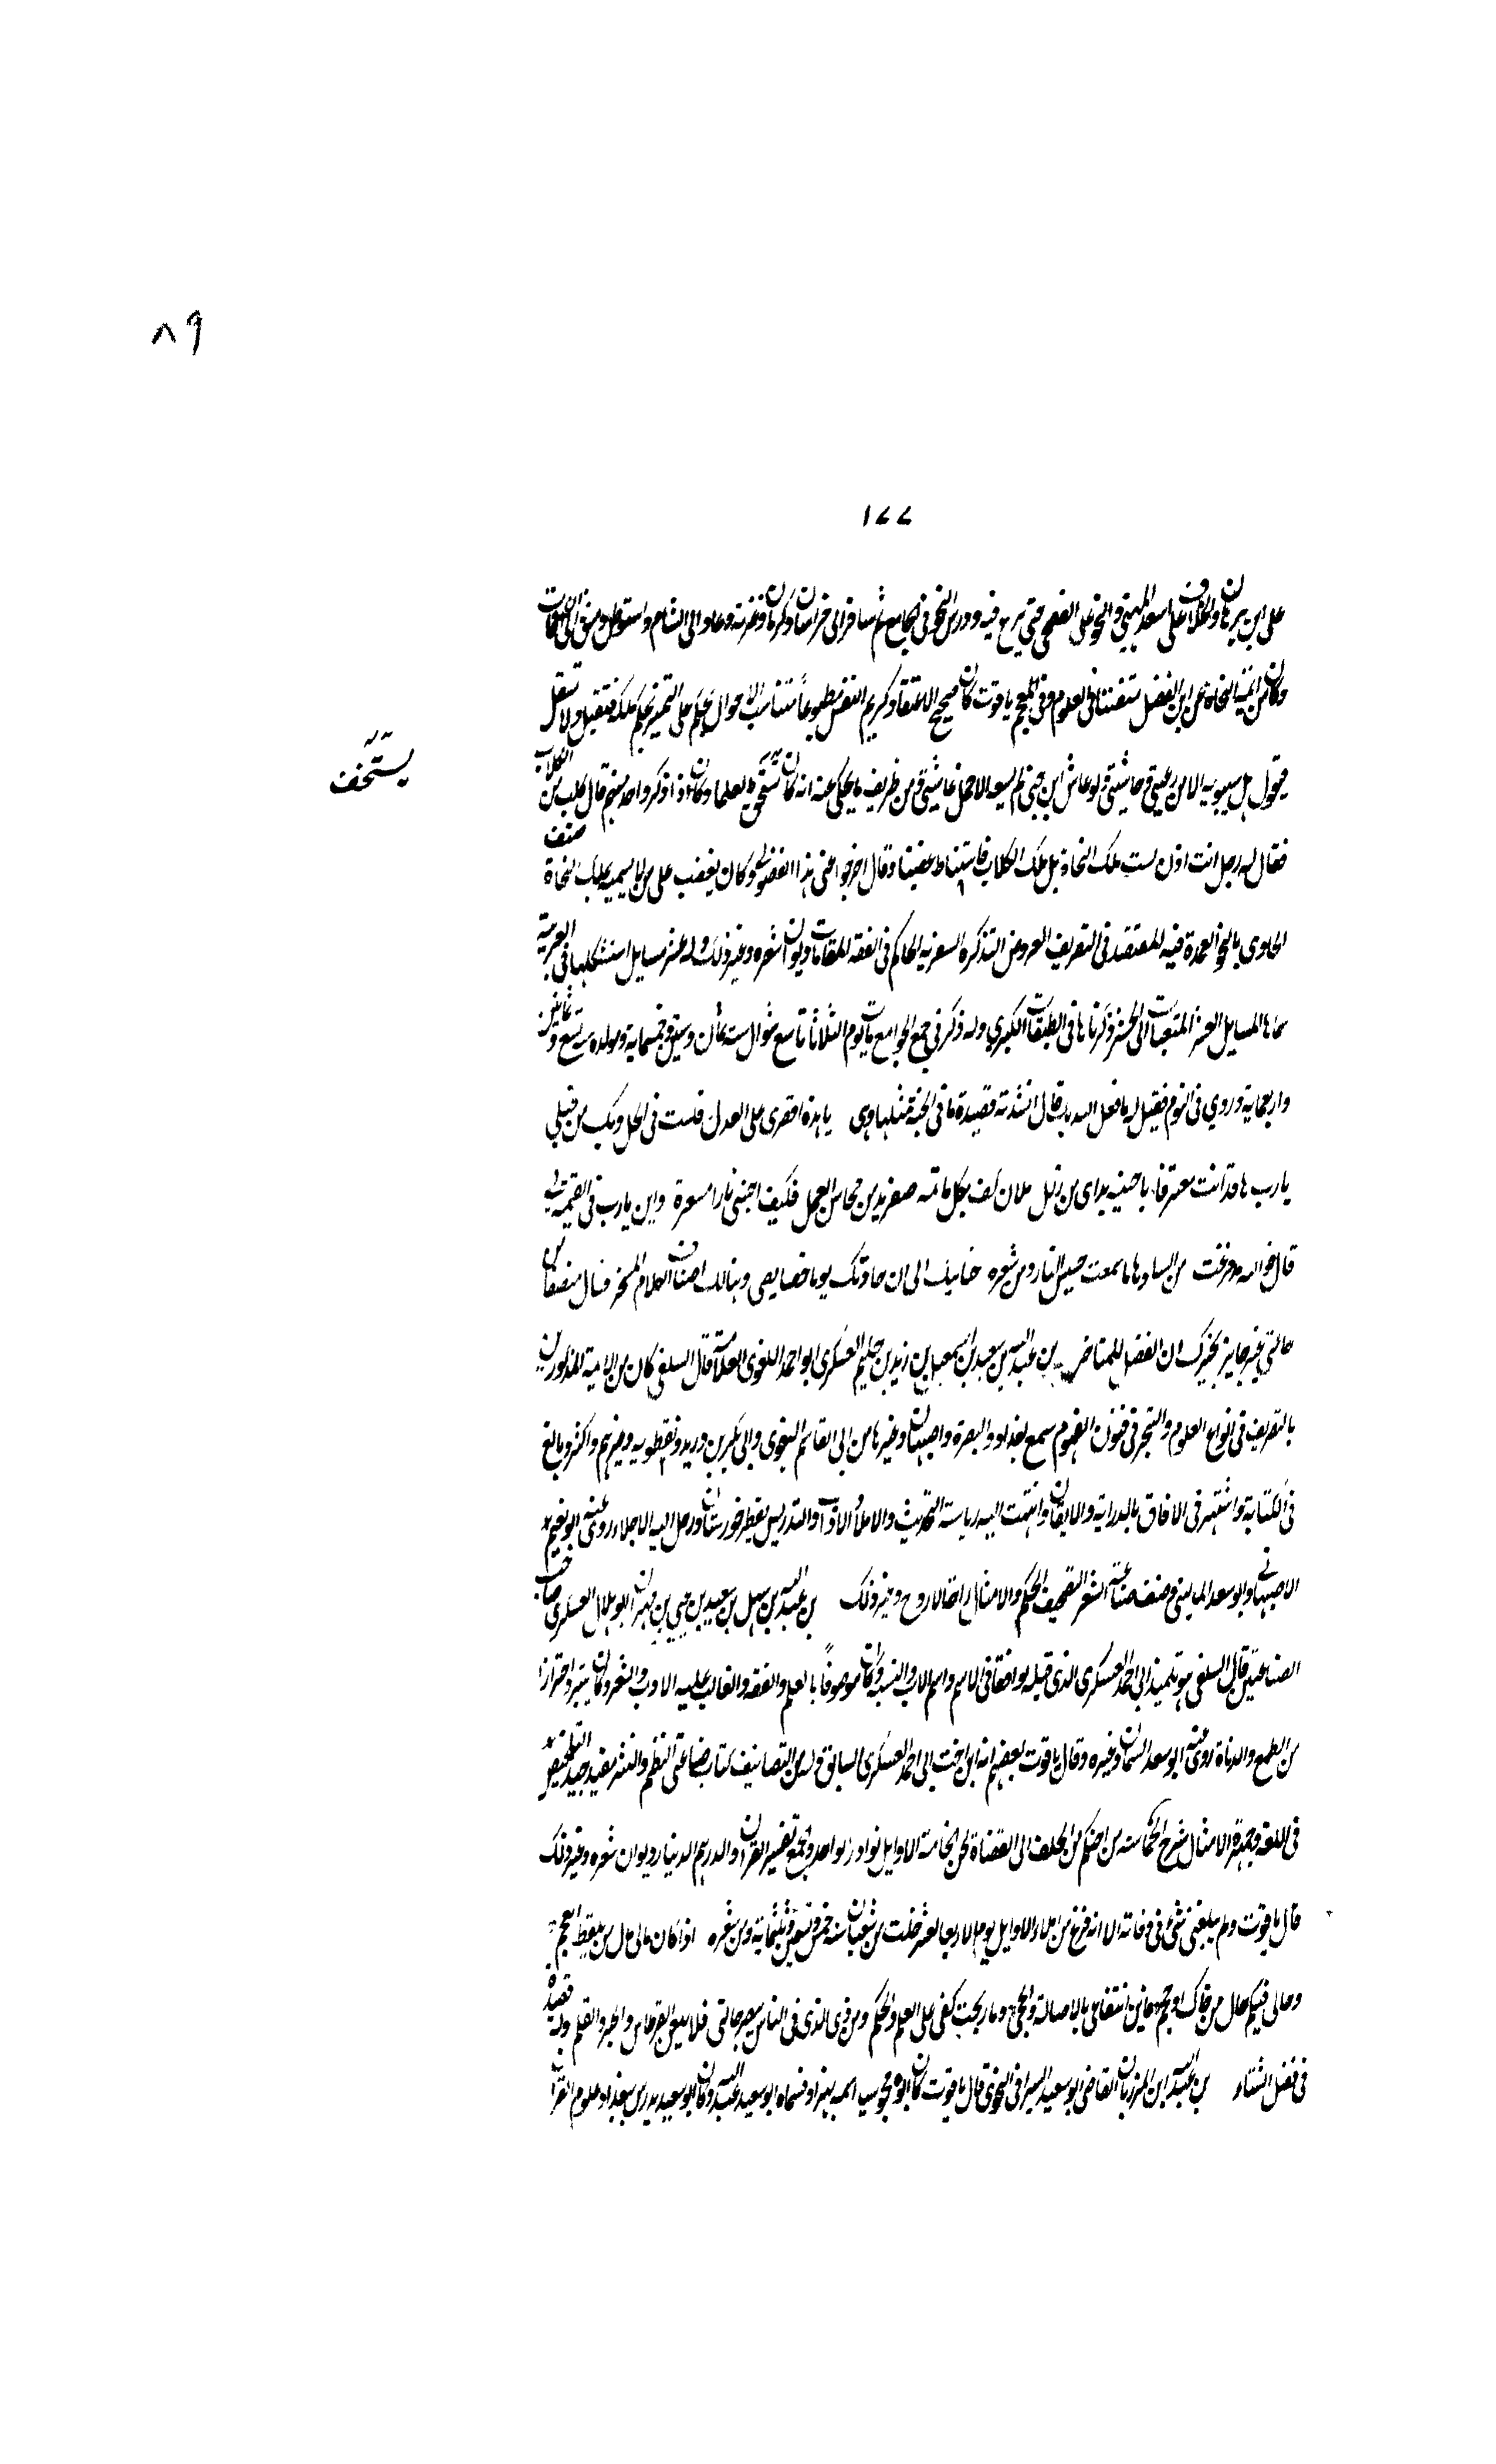 ٨٩
١٧٧
على ابن برهان والخلاف على اسعد الميهني والنحو على الفصيحي حتى برع فيه ودرس النحو في الجامع ثم سافر الى خراسان وكرمان وغزنة وعاد الى الشام واستوطن دمشق الى ان مات
وكان من ائمة النحاة غزير الفضل متفننا في العلوم وفي المعجم ياقوت كان صحيح الاعتقاد كريم النفس مطبوعا متناسب الاحوال يحكم على اهل التميز بحكم ملك فيقبل ولا يستقل
فيقول هل سيبويه الا من رعيتي وحاشيتي ولو عاش ابن جني لم يسعه الا حمل غاشيتي ومن ظريف ما يحكى عنه انه كان يستخف بالعلما وكان اذا ذكر واحد منهم قال كلب من الكلاب
يستخف
فقال له رجل انت اذن لست ملك النحاة بل ملك الكلاب فاستشاط غضبا وقال اخرجوا عني هذا الفضولي وكان يغضب على من لا يسميه بملك النحاة صنف
الحاوي بالنحو العمدة فيه المقتصد في التصريف العروض التذكرة السفرية الحاكم في الفقه المقامات ديوان شعره وغير ذلك وله عشر مسايل استشكلها في العربية
سماها المسايل العشر المتعبات الى الحشر ذكرناها في الطبقات الكبرى وله ذكر في جمع الجوامع مات يوم الثلاثا تاسع شوال سنة ثمان وستين وخمسماية ومولده سنة تسع وثمانين
واربعماية وروي في النوم فقيل له ما فعل الله بك قال انشدته قصيدة ما في الجنة مثلها وهي يا هذه اقصري عن العذل فلست في الحل ويك من قبلي
يا رب ها قد اتيت معترفا بما جنته يداي من زلل ملآن كف بكل ماثمة صفر يد من محاسن العمل فكيف اخشى نارا مسعرة وانت يا رب في القيمة لي
قال فوالله منذ فرغت من انشادها ما سمعت حسيس النار ومن شعره حنانيك ان جاءتك يوما خصايصي وهالك اصناف الكلام المسخر فسل منصفا عن
حالتي غير جاير يخبرك ان الفضل للمتاخر بن عبد الله بن سعيد بن اسمعيل بن زيد بن حكيم العسكري ابو احمد اللغوي العلامة قال السلفي كان من الايمة المذكورين
بالتصريف في انواع العلوم والتبحر في فنون الفهوم سمع ببغداد والبصرة واصبهان وغيرها من ابي القاسم البغوي وابي بكر بن دريد ونفطويه وغيرهم واكثر وبالغ
في الكتابة واشتهر في الافاق بالدراية والاتقان وانتهت اليه رياسة التحديث والاملا الاداب والتدريس بقطر خورستان ورحل اليه الاجلاء روى عنه ابو نعيم
الاصبهاني وابو سعد الماليني وصنف صناعة الشعر التصحيف الحكم والامثال راحة الارواح وغير ذلك بن عبد الله بن سهل بن سعيد بن يحيى بن مهران ابو هلال العسكري صاحب
الصناعتين قال السلفي هو تلميذ ابي احمد العسكري الذي قبله توافقا في الاسم واسم الاب والنسبة وكان موصوفا بالعلم والفقه والغالب عليه الادب والشعر وكان يتبزز احترازا
من الطمع والدناة روى عنه ابو سعد السمان وغيره وقال ياقوت بعضهم انه ابن اخت ابي احمد العسكري السابق وله من التصانيف كتاب صناعتي النظم والنثر مفيد جدا التلخيص
في اللغة جمهرة الامثال شرح الحماسة من احتكم من الخلفا الى القضاة لحن الخاصة الاوايل نوادر الواحد والجمع تفسير القرآن والدرهم والدينار ديوان شعره وغير ذلك
قال ياقوت ولم يبلغني شئ في وفاته الا انه فرغ من املاء الاوايل يوم الاربعا لعشر خلت من شعبان سنة خمس وتسعين وثلثماية ومن شعره اذا كان مالي مال من يلقط العجم
وحالي فيكم حال من حاك او حجم فاين انتفاعي بالاصالة والحجى وما ربحت كفي على العلم والحكم ومن ذي الذي في الناس يبصر حالتي فلا يلعن القرطاس والحبر والقلم وله قصيدة
في فضل الشتاء بن عبد الله ابن المرزبان القاضي ابو سعيد السيرافي النحوي قال ياقوت كان ابوه مجوسيا اسمه بهزاد فسماه ابو سعيد عبد الله وكان ابو سعيد يدرس ببغداد علوم القرآن